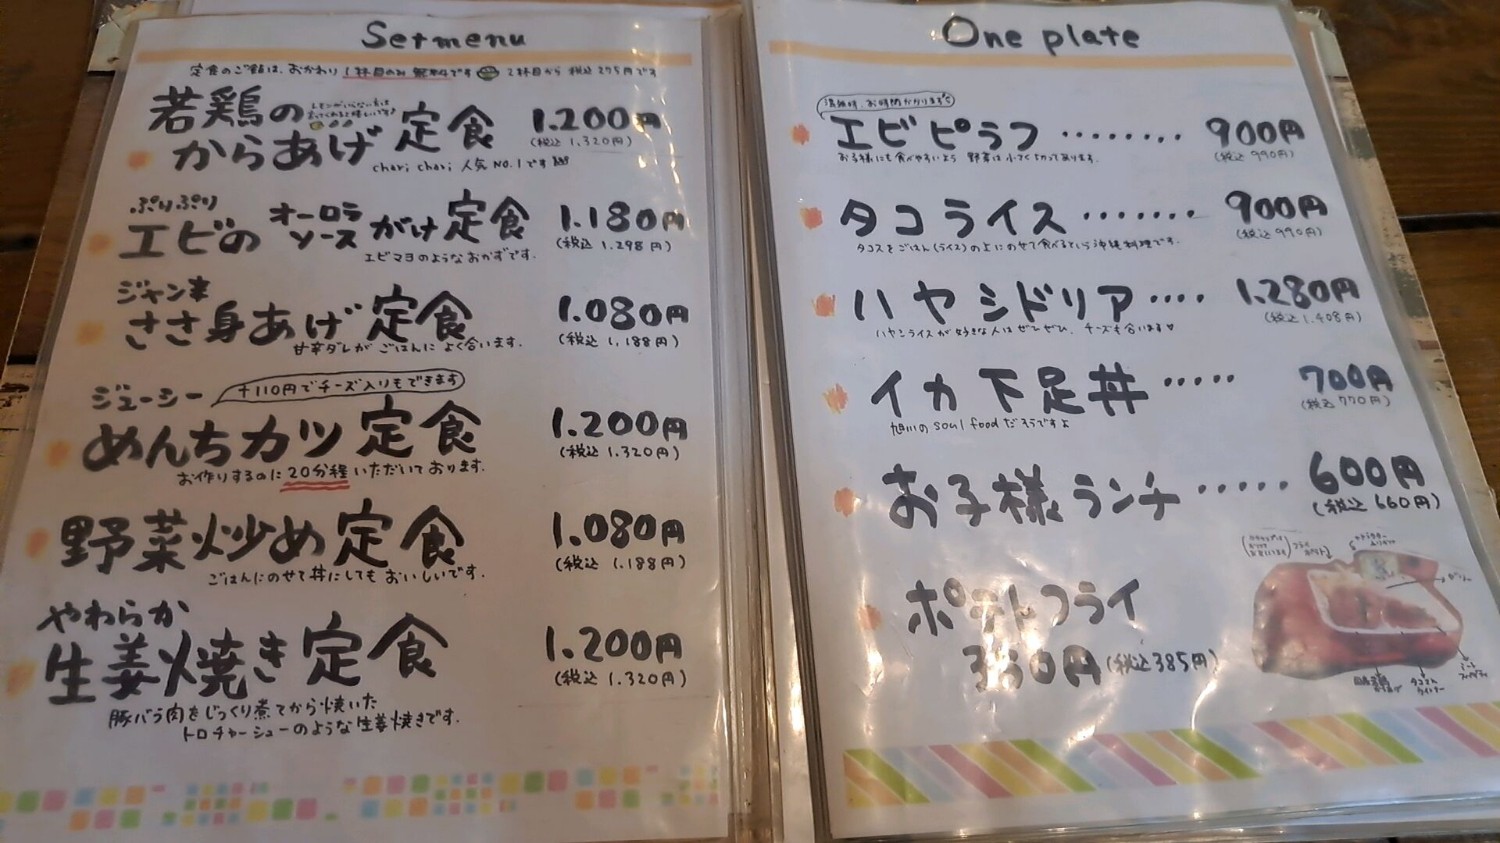 Setmenu
定食のご飯は、おかわり1杯目のみ無料です 2杯目から 税込275円です
若鶏の
からあげ定食 1.200円
(税込 1.320円)
chari chari 人気 NO.1です
ぷりぷり
エビのオーロラソースがけ定食 1.180円
(税込 1.298円)
エビマヨのようなおかずです。
ジャン辛
ささ身あげ定食 1.080円
(税込 1,188円)
甘辛ダレがごはんによく合います。
ジューシー +110円でチーズ入りもできます
めんちカツ定食 1.200円
(税込 1.320円)
お作りするのに20分程いただいております。
野菜炒め定食 1.080円
(税込 1.188円)
ごはんにのせて丼にしてもおいしいです。
やわらか
生姜焼き定食 1.200円
(税込 1.320円)
豚バラ肉をじっくり煮てから焼いた
トロチャーシューのような生姜焼きです。
One plate
混雑時、お時間かかります
エビピラフ ........ 900円
(税込 990円)
お子様にも食べやすいよう 野菜は小さく切ってあります。
タコライス ....... 900円
(税込 990円)
タコスをごはん(ライス)の上にのせて食べるという沖縄料理です。
ハヤシドリア .... 1.280円
(税込 1.408円)
ハヤシライスが好きな人はぜひぜひ、チーズも合います♥
イカ下足丼 ..... 700円
(税込 770円)
旭川のsoul foodだそうですよ
お子様ランチ ..... 600円
(税込 660円)
ポテトフライ
350円(税込385円)